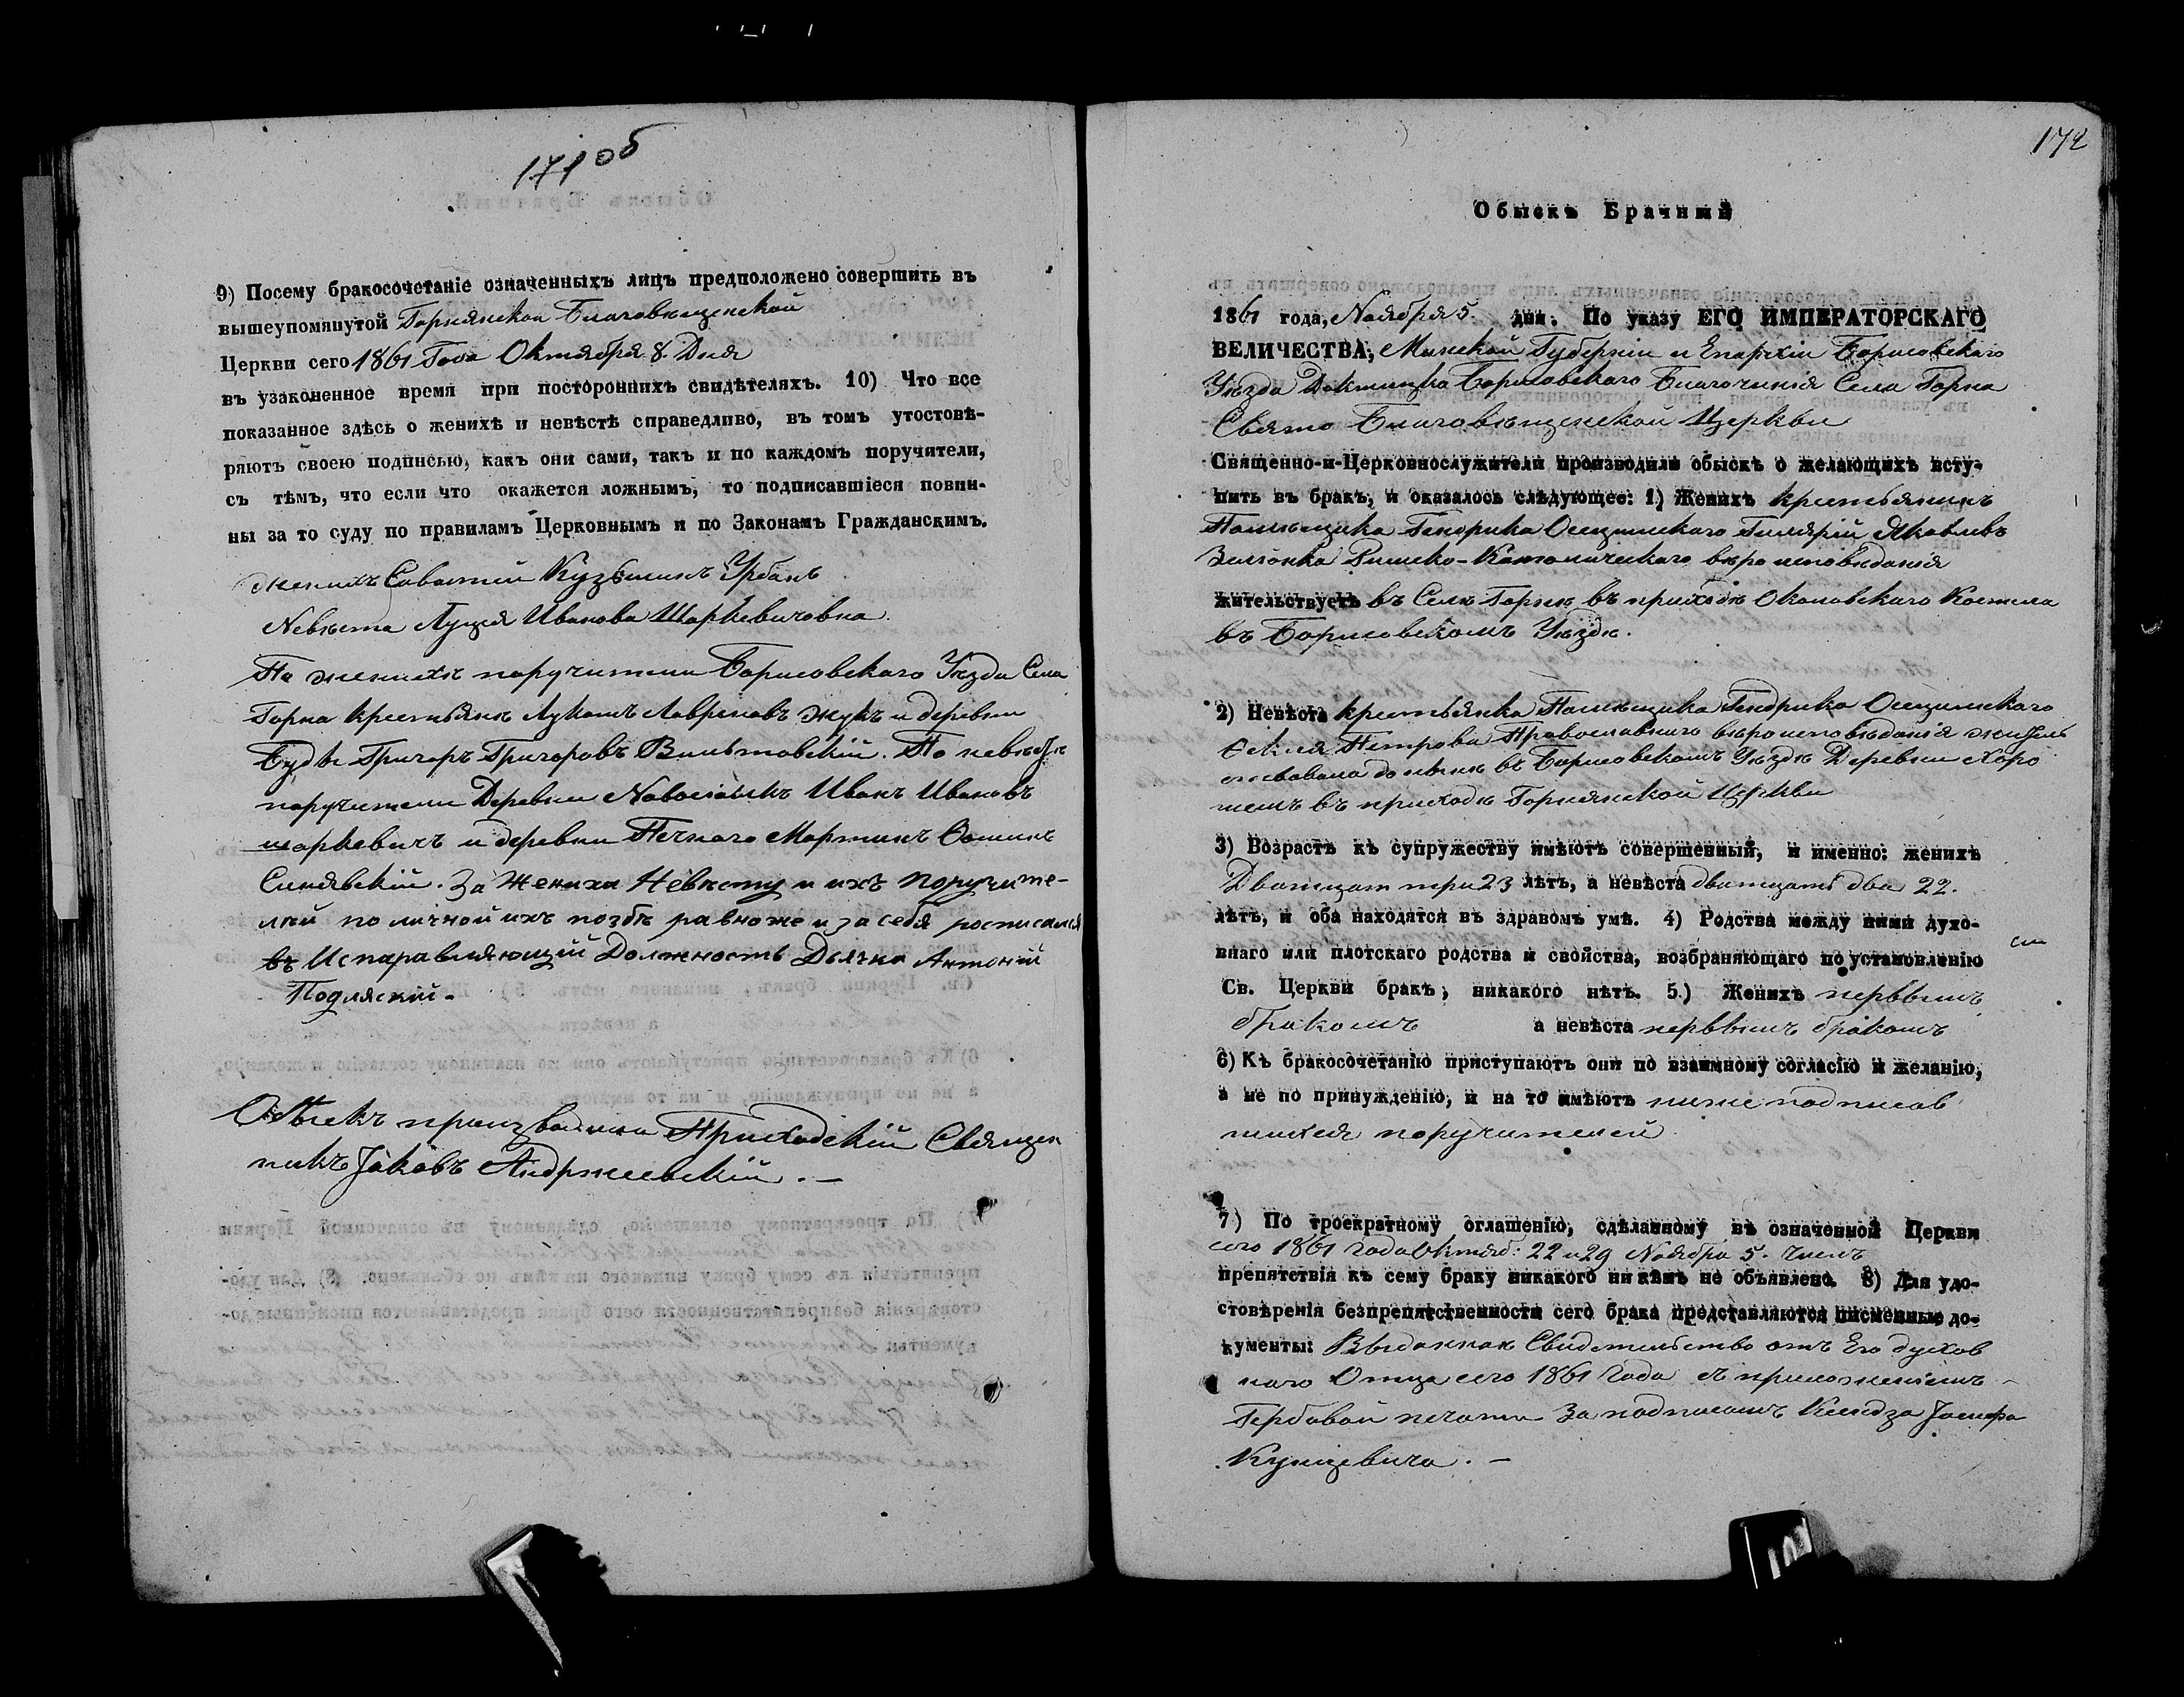 171 об
9) Посему бракосочетаніе означенныхъ лицъ предположено совершить въ
вышеупомянутой Горнянской Благовѣщенской
Церкви сего 1861 Года Октября 8. Дня
въ узаконенное время при постороннихъ свидѣтеляхъ. 10) Что все
показанное здѣсь о женихѣ и невѣстѣ справедливо, въ томъ утостовѣ-
ряютъ своею подписью, какъ они сами, такъ и по каждомъ поручители,
съ тѣмъ, что если что окажется ложнымъ, то подписавшіеся повин-
ны за то суду по правиламъ Церковнымъ и по Законамъ Гражданскимъ.
женихъ Саватій Кузьминъ Урбанъ
Невѣста Луція Иванова Шаркевичовна
По женихѣ поручители Борисовскаго Уѣзда Села
Горна крестьянъ Лукашъ Лавреновъ Жукъ и деревни
Григоръ Григоровъ Вильтовскій. По невѣстѣ
поручители Деревни Иванъ Ивановъ
шаркевичъ и деревни Мартинъ Ѳоминъ
Синявскій. За Жениха Невѣсту и ихъ поручите-
лей по личной ихъ позбѣ равноже и за себя росписался
въ Исправляющій Должность Дьячка Антоній
Подляскій.
Обыскъ производилъ Приходскій Священ
никъ Іаковъ Андржеевскій. —
172
Обыскъ Брачный
1861 года, Ноября 5. дня. По указу ЕГО ИМПЕРАТОРСКАГО
ВЕЛИЧЕСТВА, Минской Губерніи и Епархіи Борисовскаго
Уѣзда Докшицко Борисовскаго Благочинія Села Горна
Свято Благовѣщенской Церкви
Священно-и-Церковнослужители производили обыскъ о желающихъ всту-
пить въ бракъ, и оказалось слѣдующее: 1) Женихъ крестьянинъ
Помѣщика Гендрика Осцимскаго Гилярій Яковлевъ
Зеліонка Римско-Католическаго вѣроисповѣданія
жительствуетъ въ Селѣ Горнѣ въ приходѣ Околовскаго Костела
въ Борисовскомъ Уѣздѣ.
2) Невѣста крестьянка Помѣщика Гендрика Осцимскаго
Ѳекля Петрова Православнаго вѣроисповѣданія житель
ствовала до нынѣ въ Борисовскомъ Уѣздѣ Деревни Хоро
шемъ въ приходѣ Горнянской Церкви
3) Возрастъ къ супружеству имѣютъ совершенный, и именно: женихъ
Дватцат три 23 лѣтъ, а невѣста дватцать два 22.
лѣтъ, и оба находятся въ здравомъ умѣ. 4) Родства между ними духо-
внаго или плотскаго родства и свойства, возбраняющаго по установленію
Св. Церкви бракъ, никакого нѣтъ. 5.) Женихъ первымъ
бракомъ а невѣста первымъ бракомъ
6) Къ бракосочетанію приступаютъ они по взаимному согласію и желанію,
а не по принужденію, и на то имѣютъ ниже подписав
шихся поручителей
7) По троекратному оглашенію, сдѣланному въ означенной Церкви
сего 1861 года Октяб: 22 и 29 Ноября 5. Числъ
препятствія къ сему браку никакого ни кѣмъ не объявлено. 8) Для удо-
стовѣренія безпрепятственности сего брака представляются писменные до-
кументы: Выданное Свидетельство отъ Его духов
наго Отца сего 1861 Года съ приложеніемъ
Гербовой печати За подписомъ Ксендза Іосифа
Кунцевича. —